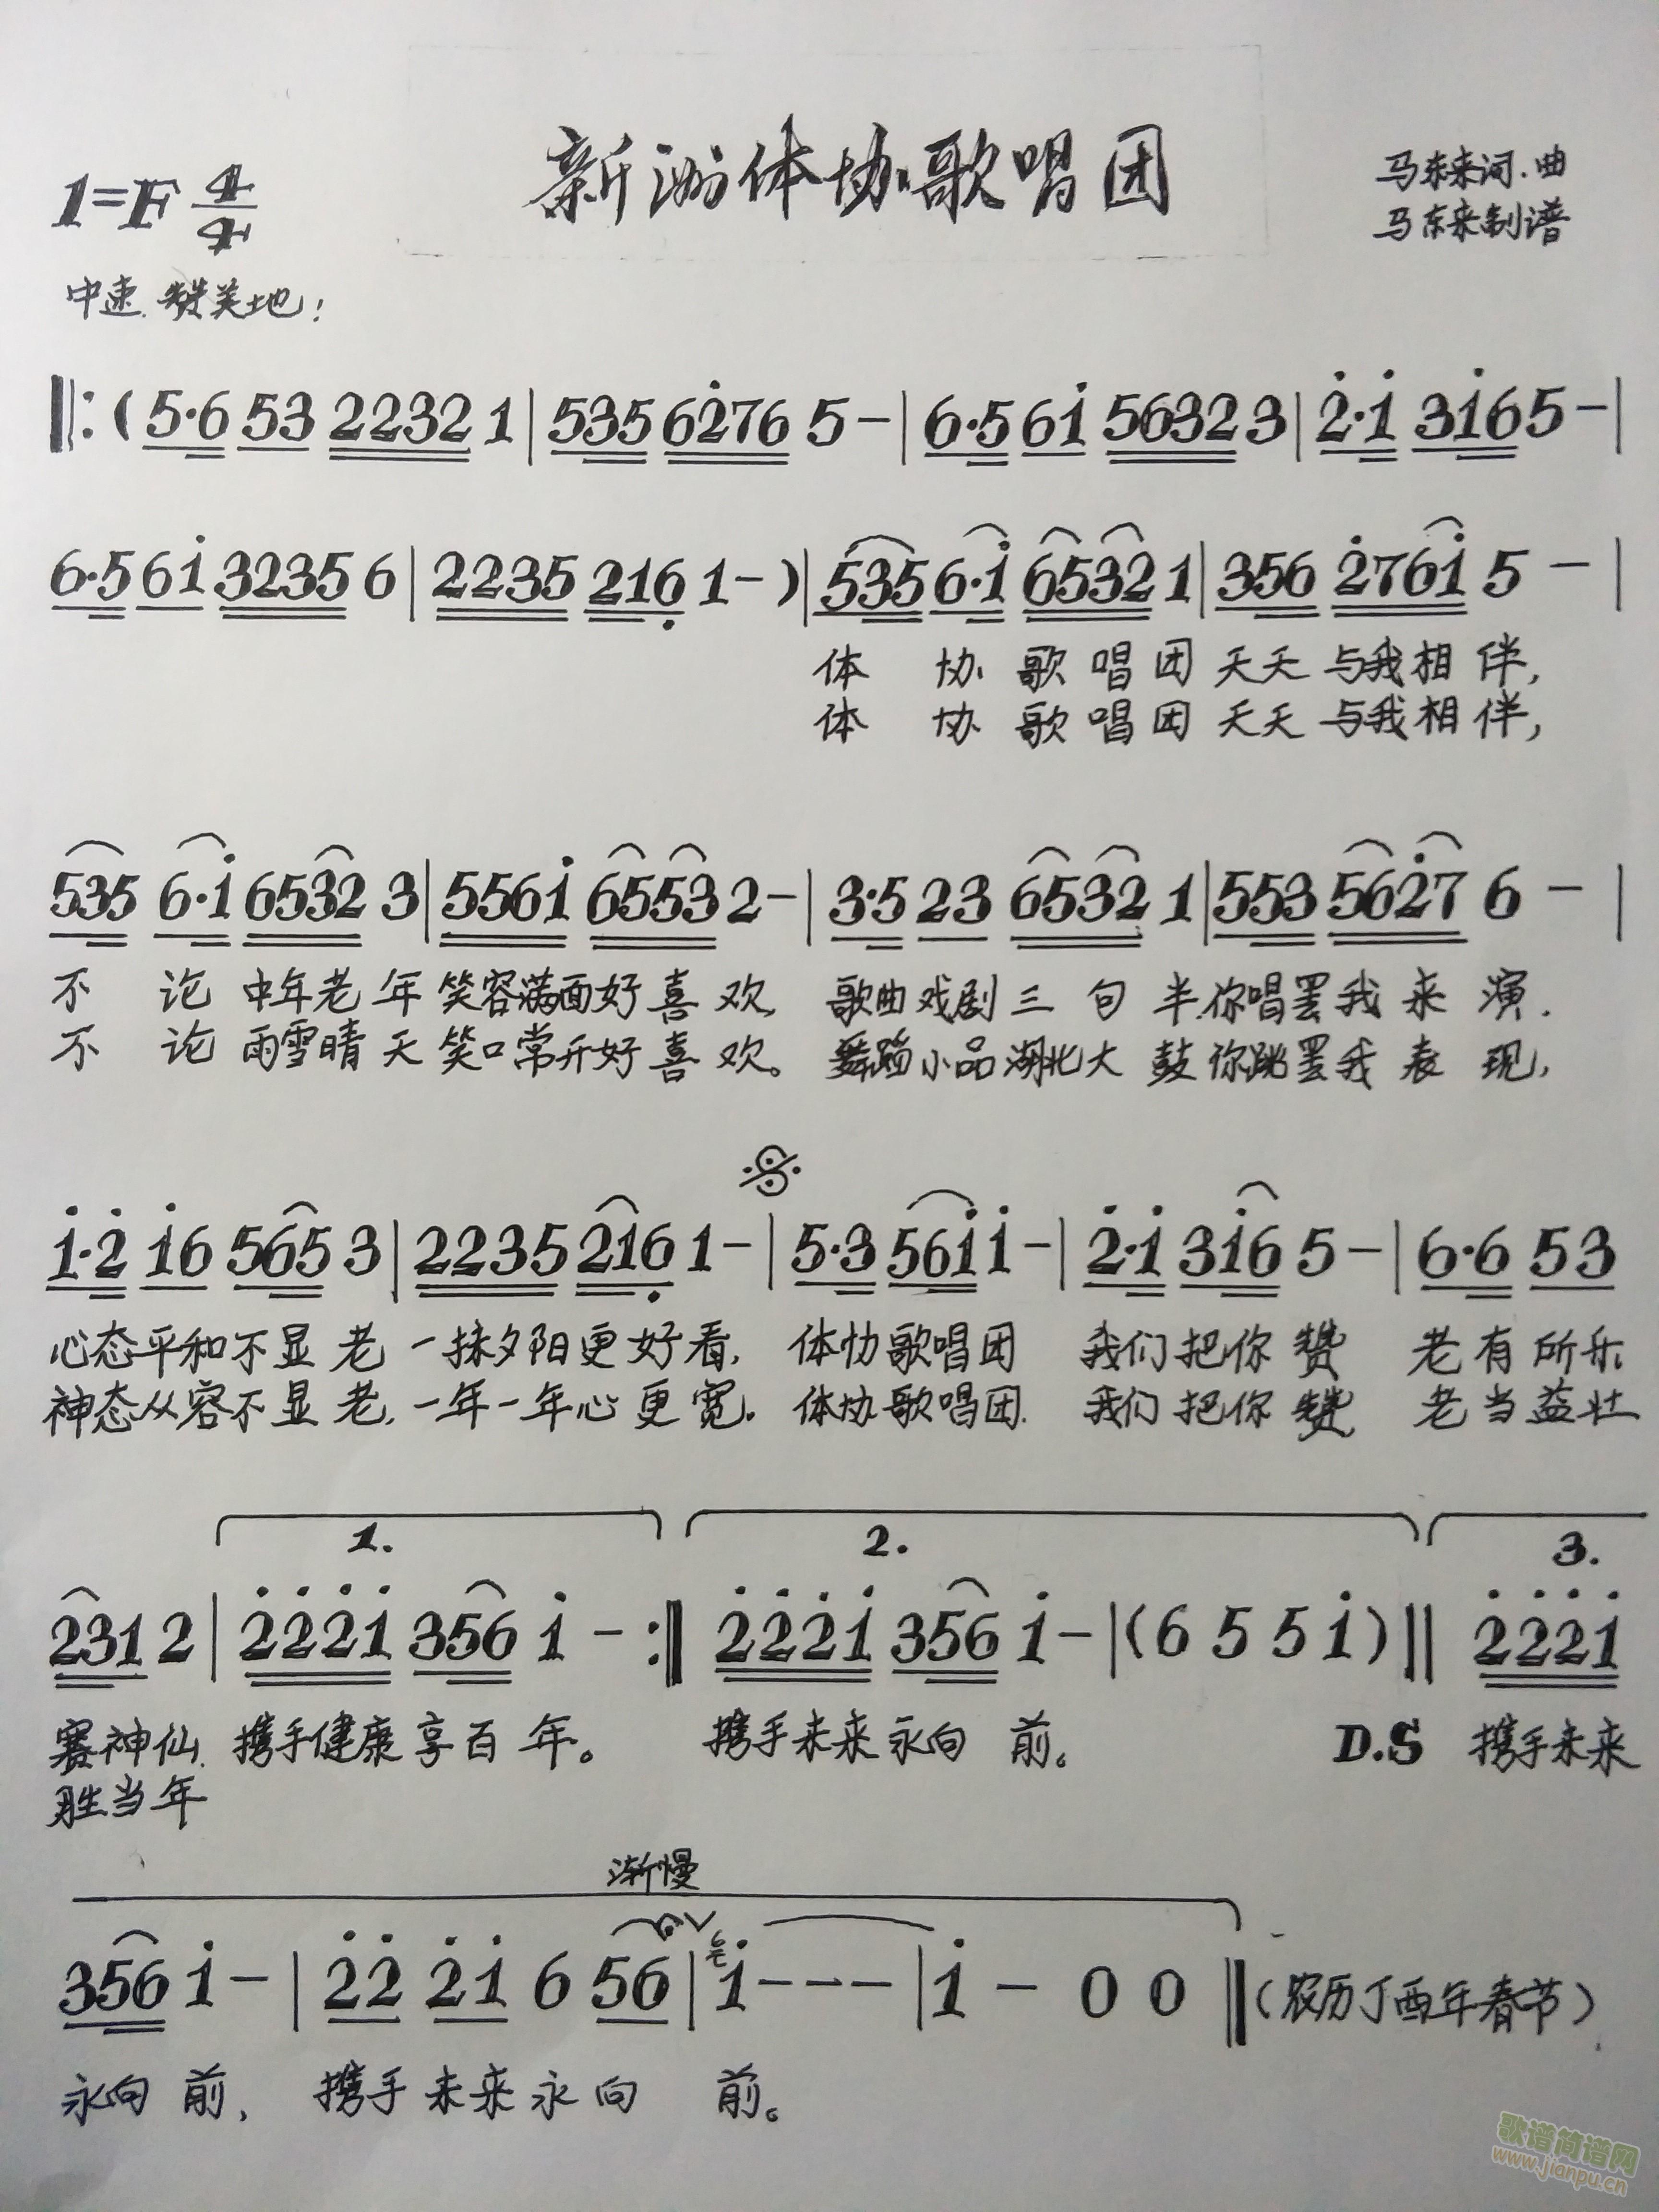 新洲体协歌唱团
1=F 4/4
马东来词.曲
马东来制谱
中速.赞美地:
‖:(5·6 53 2232 1|535 6276 5-|6·5 61 5632 3|2·1 316 5-|
6·5 61 3235 6|2235 216 1-)|535 6·1 6532 1|356 2761 5-|
体协歌唱团天天与我相伴,
体协歌唱团天天与我相伴,
535 6·1 6532 3|5561 6553 2-|3·5 23 6532 1|553 5627 6-|
不论中年老年笑容满面好喜欢,歌曲戏剧三句半.你唱罢我来演.
不论雨雪晴天笑口常开好喜欢。舞蹈小品湖北大鼓你跳罢我表现,
1·2 16 565 3|2235 216 1-|5·3 561 1-|2·1 316 5-|6·6 53
心态平和不显老一抹夕阳更好看,体协歌唱团 我们把你赞 老有所乐
神态从容不显老,一年一年心更宽。体协歌唱团. 我们把你赞, 老当益壮
1. 2. 3.
231 2|2221 356 1-:‖2221 356 1-|(6 5 5 1)‖2221
赛神仙.携手健康享百年。 携手未来永向前。 D.S 携手未来
胜当年
渐慢
356 1-|22 21 6 56|6 1---|1-00‖(农历丁酉年春节)
永向前, 携手未来永向前。
歌谱简谱网
www.jianpu.cn